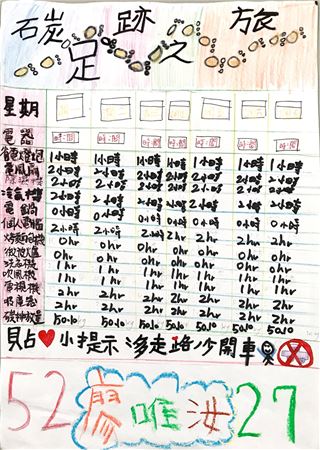 碳足跡之旅
星期
電器 時間 時間 時間 時間 時間 時間 時間
省電燈泡 1小時 1小時 1小時 1小時 1小時 1小時 1小時
電風扇 2小時 2小時 2小時 2小時 2小時 2小時 2小時
2小時 2小時 2小時 2小時 2小時 2小時 2小時
冷氣機 2小時 2小時 2小時 2小時 2小時 2小時 2小時
電鍋 0小時 0小時 0小時 0小時 0小時 0小時 0小時
個人電腦 2小時 2小時 2hr 2hr 2hr 2hr 2hr
0hr 0hr 0hr 0hr 0hr 0hr 0hr
微波爐 0hr 0hr 0hr 0hr 0hr 0hr 0hr
洗衣機 1hr 1hr 1hr 1hr 1hr 1hr 1hr
吹風機 1hr 1hr 1hr 1hr 1hr 1hr 1hr
電視機 2hr 2hr 2hr 2hr 2hr 2hr 2hr
吸塵器 2hr 2hr 2hr 2hr 2hr 2hr 2hr
碳排放量 50.10 50.10 50.10 50.10 50.10 50.10 50.10
貼心小提示多走路少開車
52 廖唯汝 27